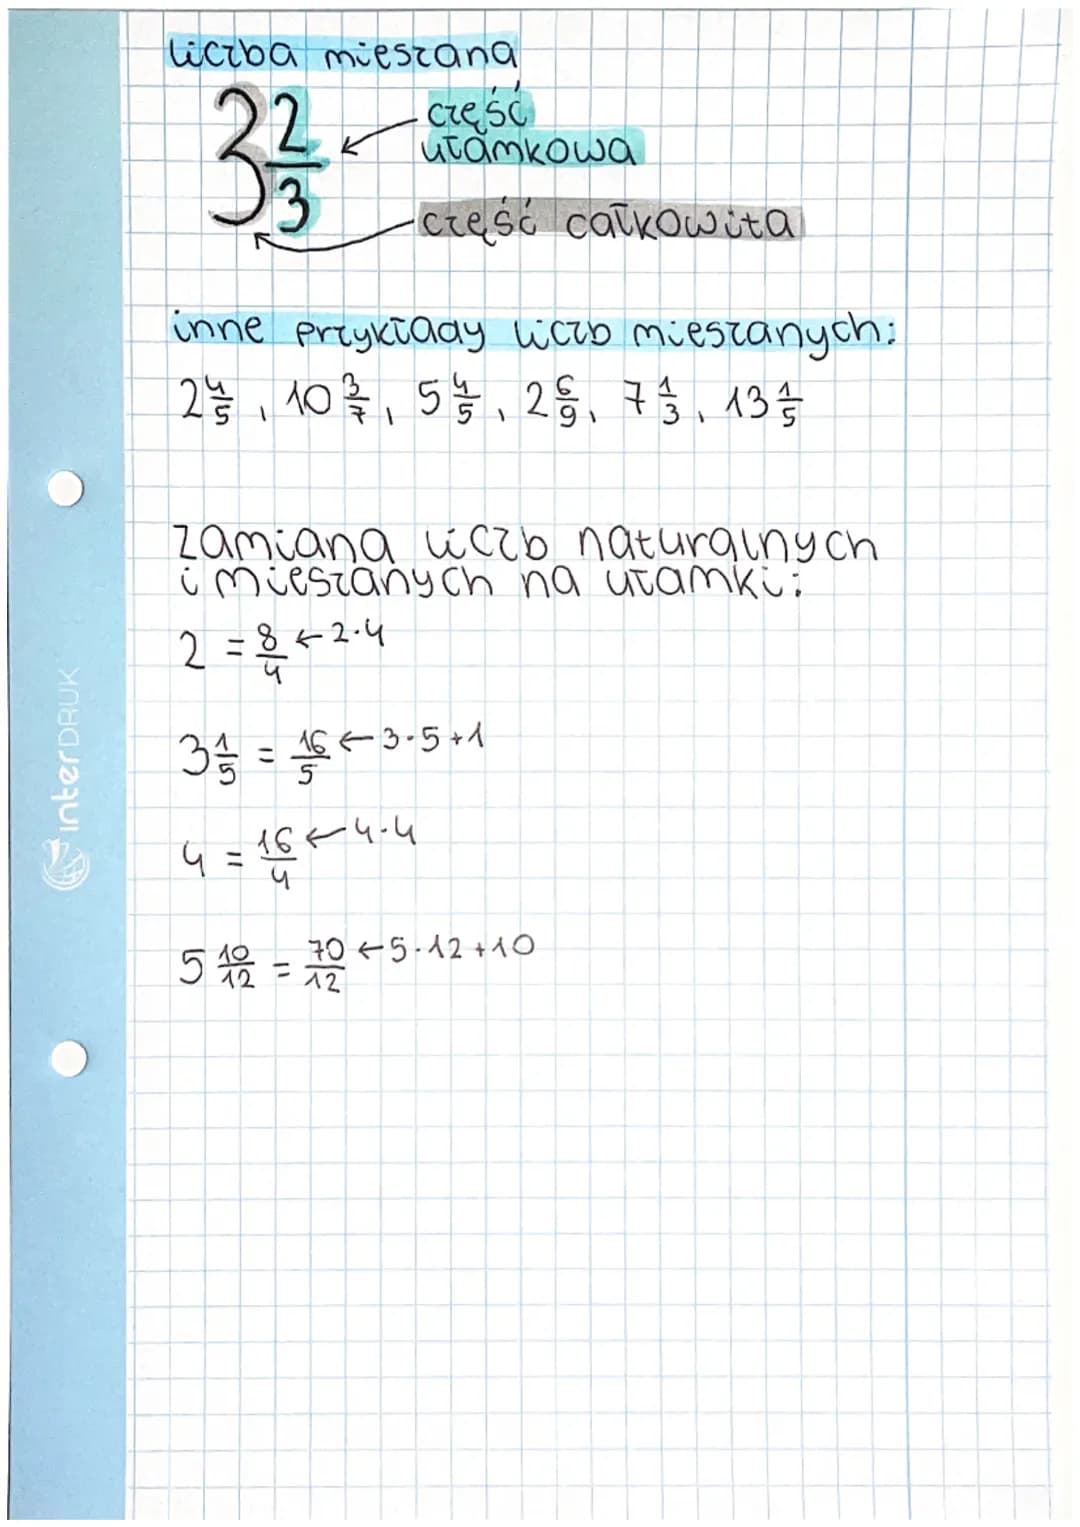 liczba mieszana
3 2/3
część
ułamkowa
część całkowita
inne przykłady liczb mieszanych:
2 4/5, 10 3/7, 5 4/5, 2 6/9, 7 1/3, 13 1/5
zamiana liczb naturalnych
i mieszanych na ułamki:
2 = 8/4 ← 2·4
3 1/5 = 16/5 ← 3·5+1
4 = 16/4 ← 4·4
5 10/12 = 70/12 ← 5·12+10
interDRUK